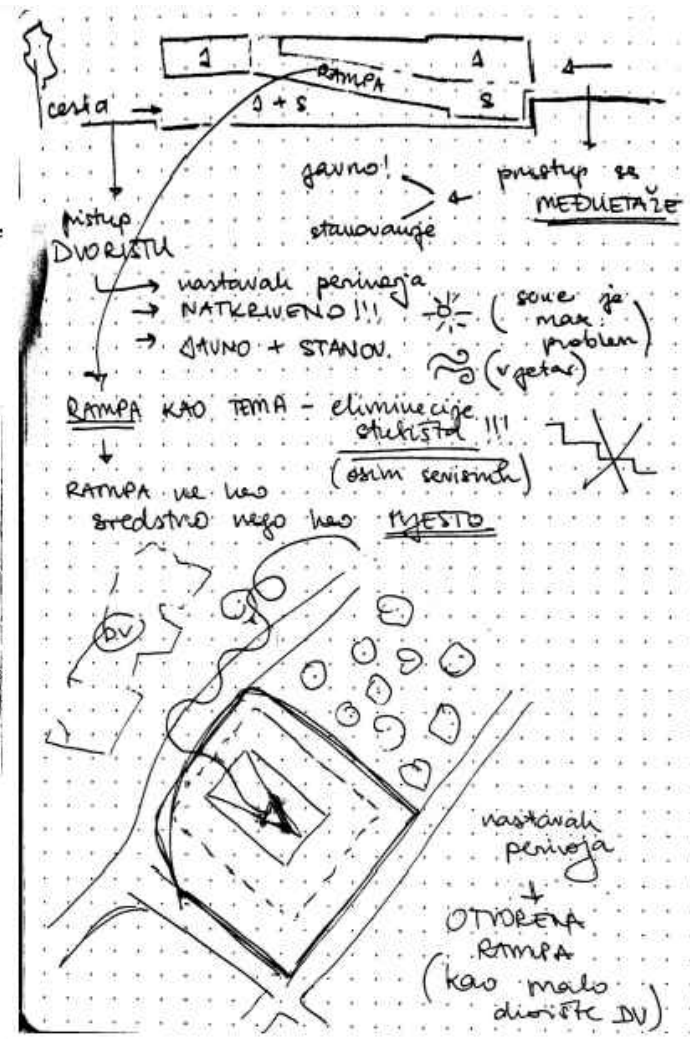 J
J
RAMPA
cesta
J + S
S
J
javno!
stanovanje
pristup sa
MEĐUETAŽE
pristup
DVORIŠTU
nastavak perivoja
NATKRIVENO!!!
JAVNO + STANOV.
(sunce je
max.
problem)
(vjetar)
RAMPA KAO TEMA – eliminacija
stubišta!!!
(osim servisnih)
RAMPA ne kao
sredstvo nego kao MJESTO
DV
nastavak
perivoja
OTVORENA
RAMPA
(kao malo
dvorište DV)